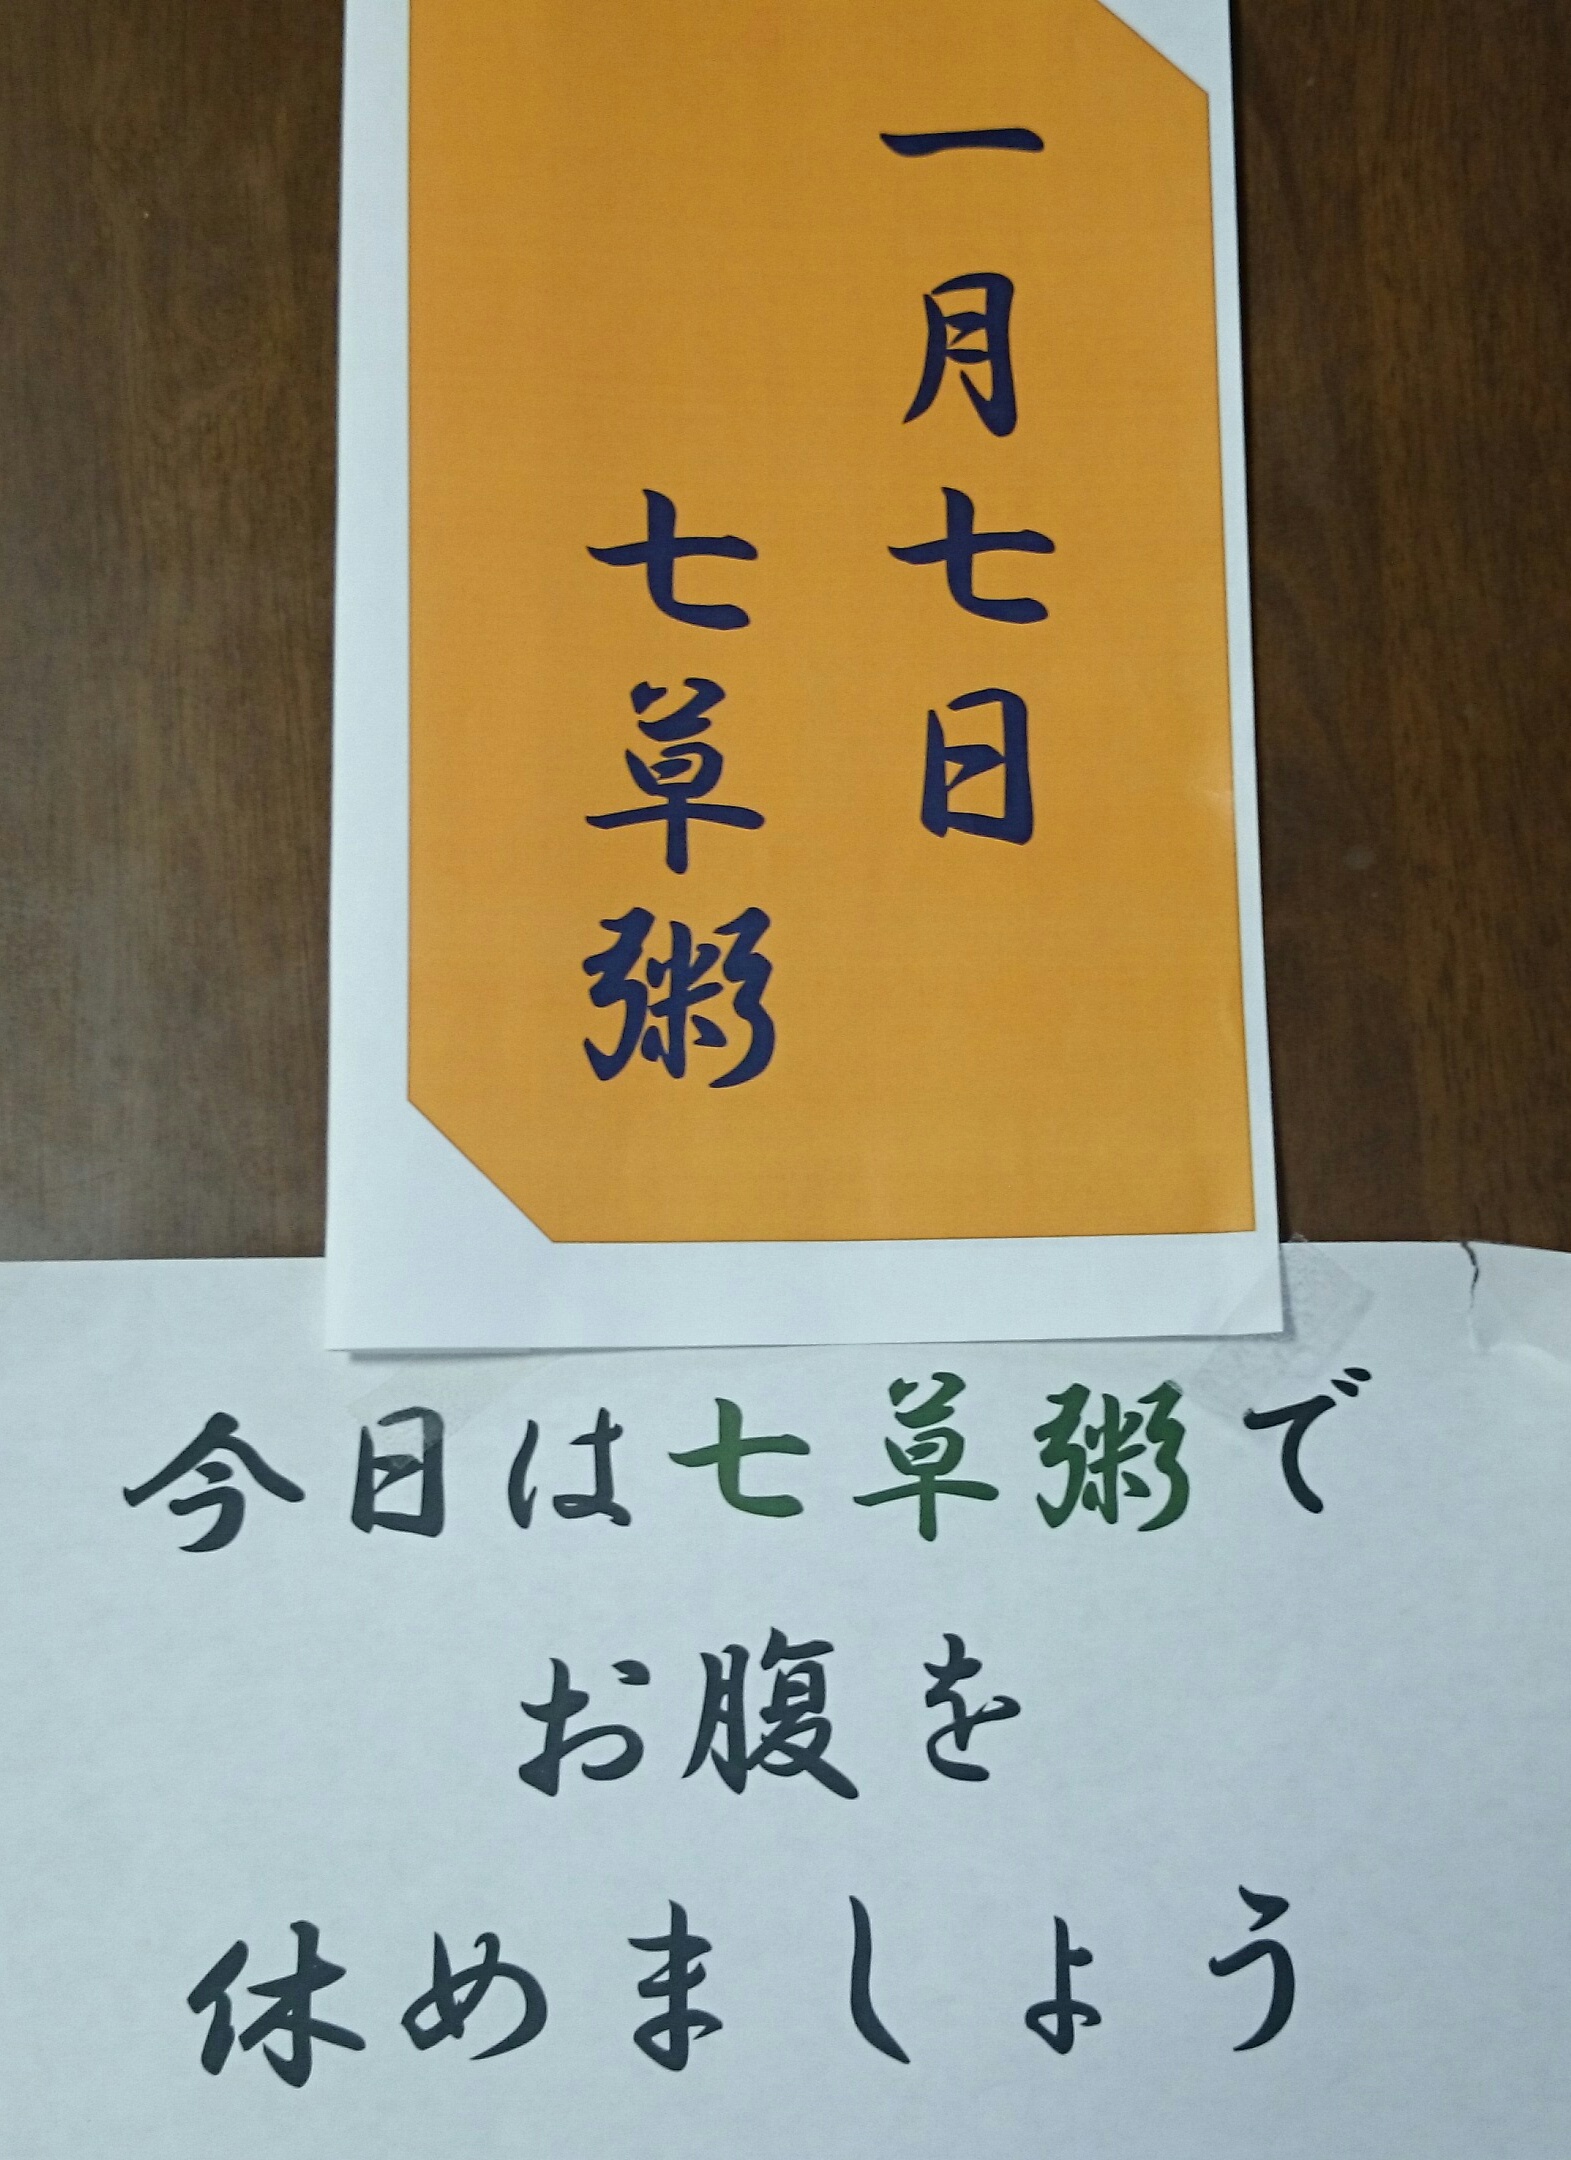 一月七日
七草粥
今日は七草粥で
お腹を
休めましょう